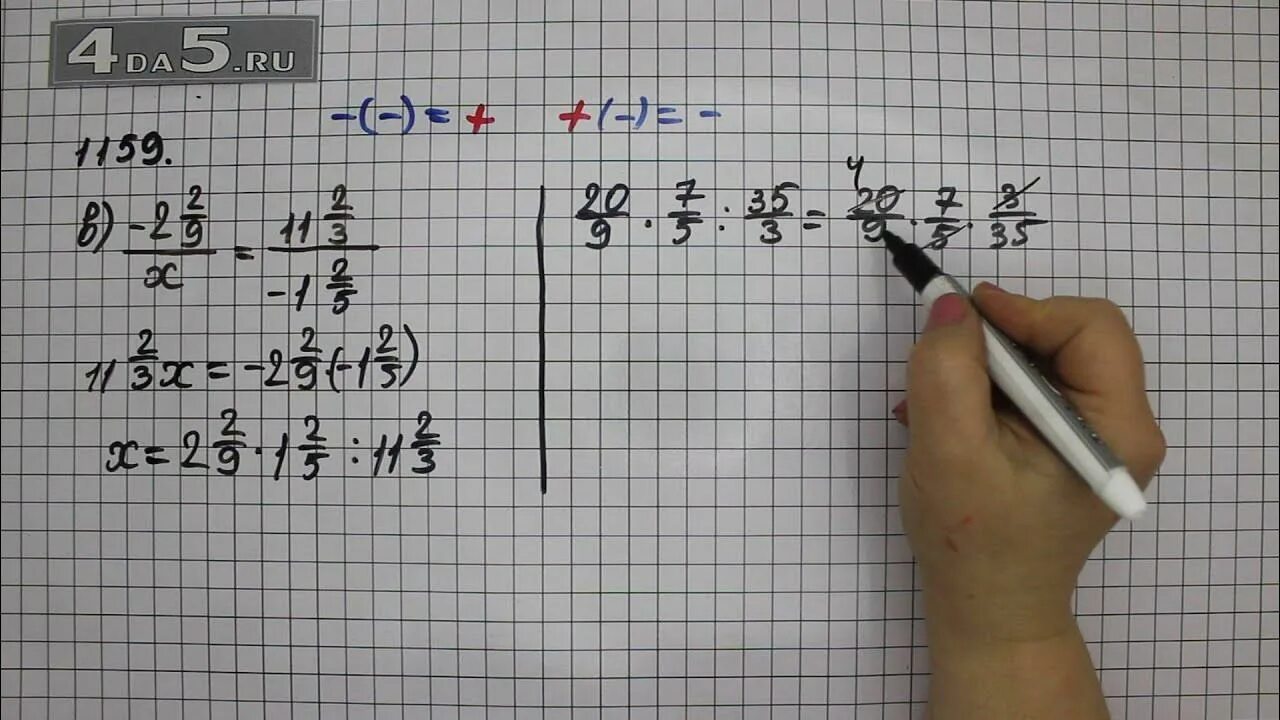 4DA5.RU
-(-) = +    +(-) = -
1159.
в) -2 2/9 / x = 11 2/3 / -1 2/5
11 2/3 x = -2 2/9 (-1 2/5)
x = 2 2/9 · 1 2/5 : 11 2/3
20/9 · 7/5 : 35/3 = 20/9 · 7/5 · 3/35
4